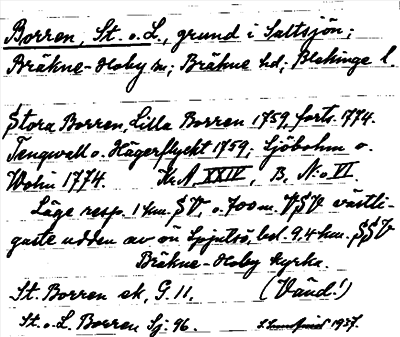 Borren, St. o. L., grund i Saltsjön;
Bräkne-Hoby sn; Bräkne hd; Blekinge l.
Stora Borren, Lilla Borren 1759, forts. 1774.
Tengwall o. Hägerflycht 1759; Sjöbohm o.
Wolin 1774. Kr.A. XXIV, B, N:o VI.
Läge resp. 1 km. SV, o. 700 m. VSV västli-
gaste udden av ön Spjutsö, bel. 9,4 km. SSV
Bräkne-Hoby kyrka.
St. Borren ek, G. 11. (Vänd!)
St. o. L. Borren Sj. 96. 1937.